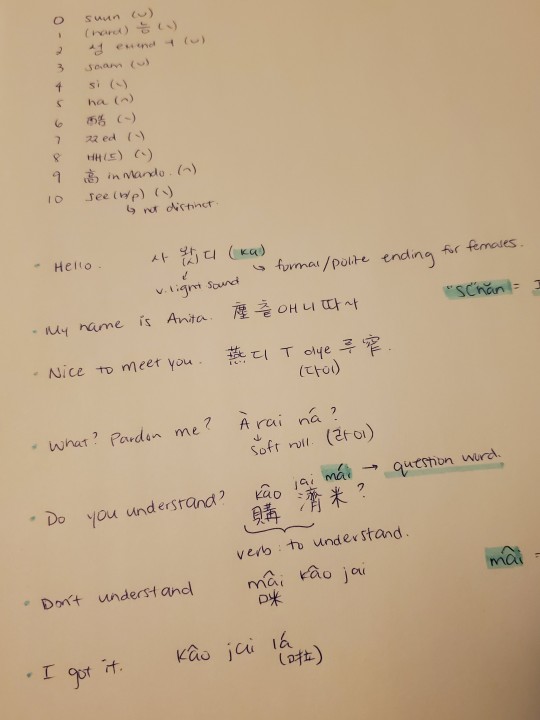 0 suun (ᴗ)
1 (hard) 능 (\)
2 성 exend ㅓ (ᴗ)
3 saam (ᴗ)
4 si (\)
5 ha (^)
6 (\)
7 쯔ed (\)
8 배(트) (\)
9 高 in Mando. (^)
10 see (b/p) (\)
↳ not distinct.
• Hello. 사 왓 디 (ka)
(시)
v. light sound ↳ formal/polite ending for females.
"Schǎn" =
• My name is Anita. 塵 츨 애니따~
• Nice to meet you. 燕 디 T 루 窄.
(다이)
• What? Pardon me? À rai ná?
soft roll. (라이)
• Do you understand? kâo jai mái → question word.
購 濟 米?
verb: to understand.
• Don't understand mâi kâo jai mâi =
咪
• I got it. kâo jai lá
(啦)